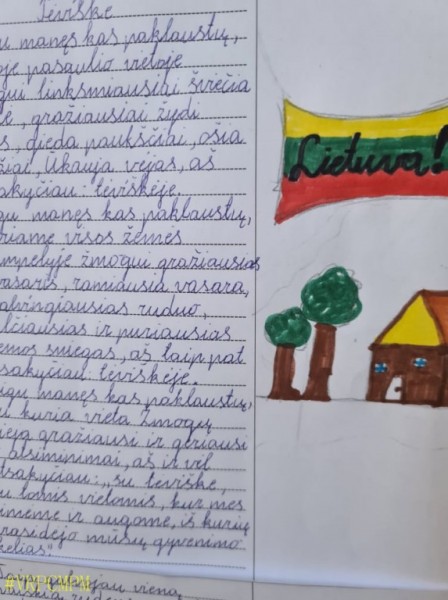 Tėviškė
u manęs kas paklaustų,
oje pasaulio vietoje
gui linksmiausiai šviečia
ė, gražiausiai žydi
s, gieda paukščiai, ošia
žiai, ūkauja vėjas, aš
akyčiau: tėviškėje.
gu manęs kas paklaustų,
riame visos žemės
mpelyje žmogui gražiausias
vasaris, ramiausia vasara,
alvingiausias ruduo,
lčiausias ir puriausias
emos sniegas, aš taip pat
sakyčiau: tėviškėje.
igu manęs kas paklaustų,
u kuria vieta žmogų
ieja gražiausi ir geriausi
atsiminimai, aš ir vėl
tsakyčiau: „su tėviške,
u tomis vietomis, kur mes
imėme ir augome, iš kurių
rasidėjo mūsų gyvenimo
kelias".
vieną
Lietuva!
#VKPCMPM